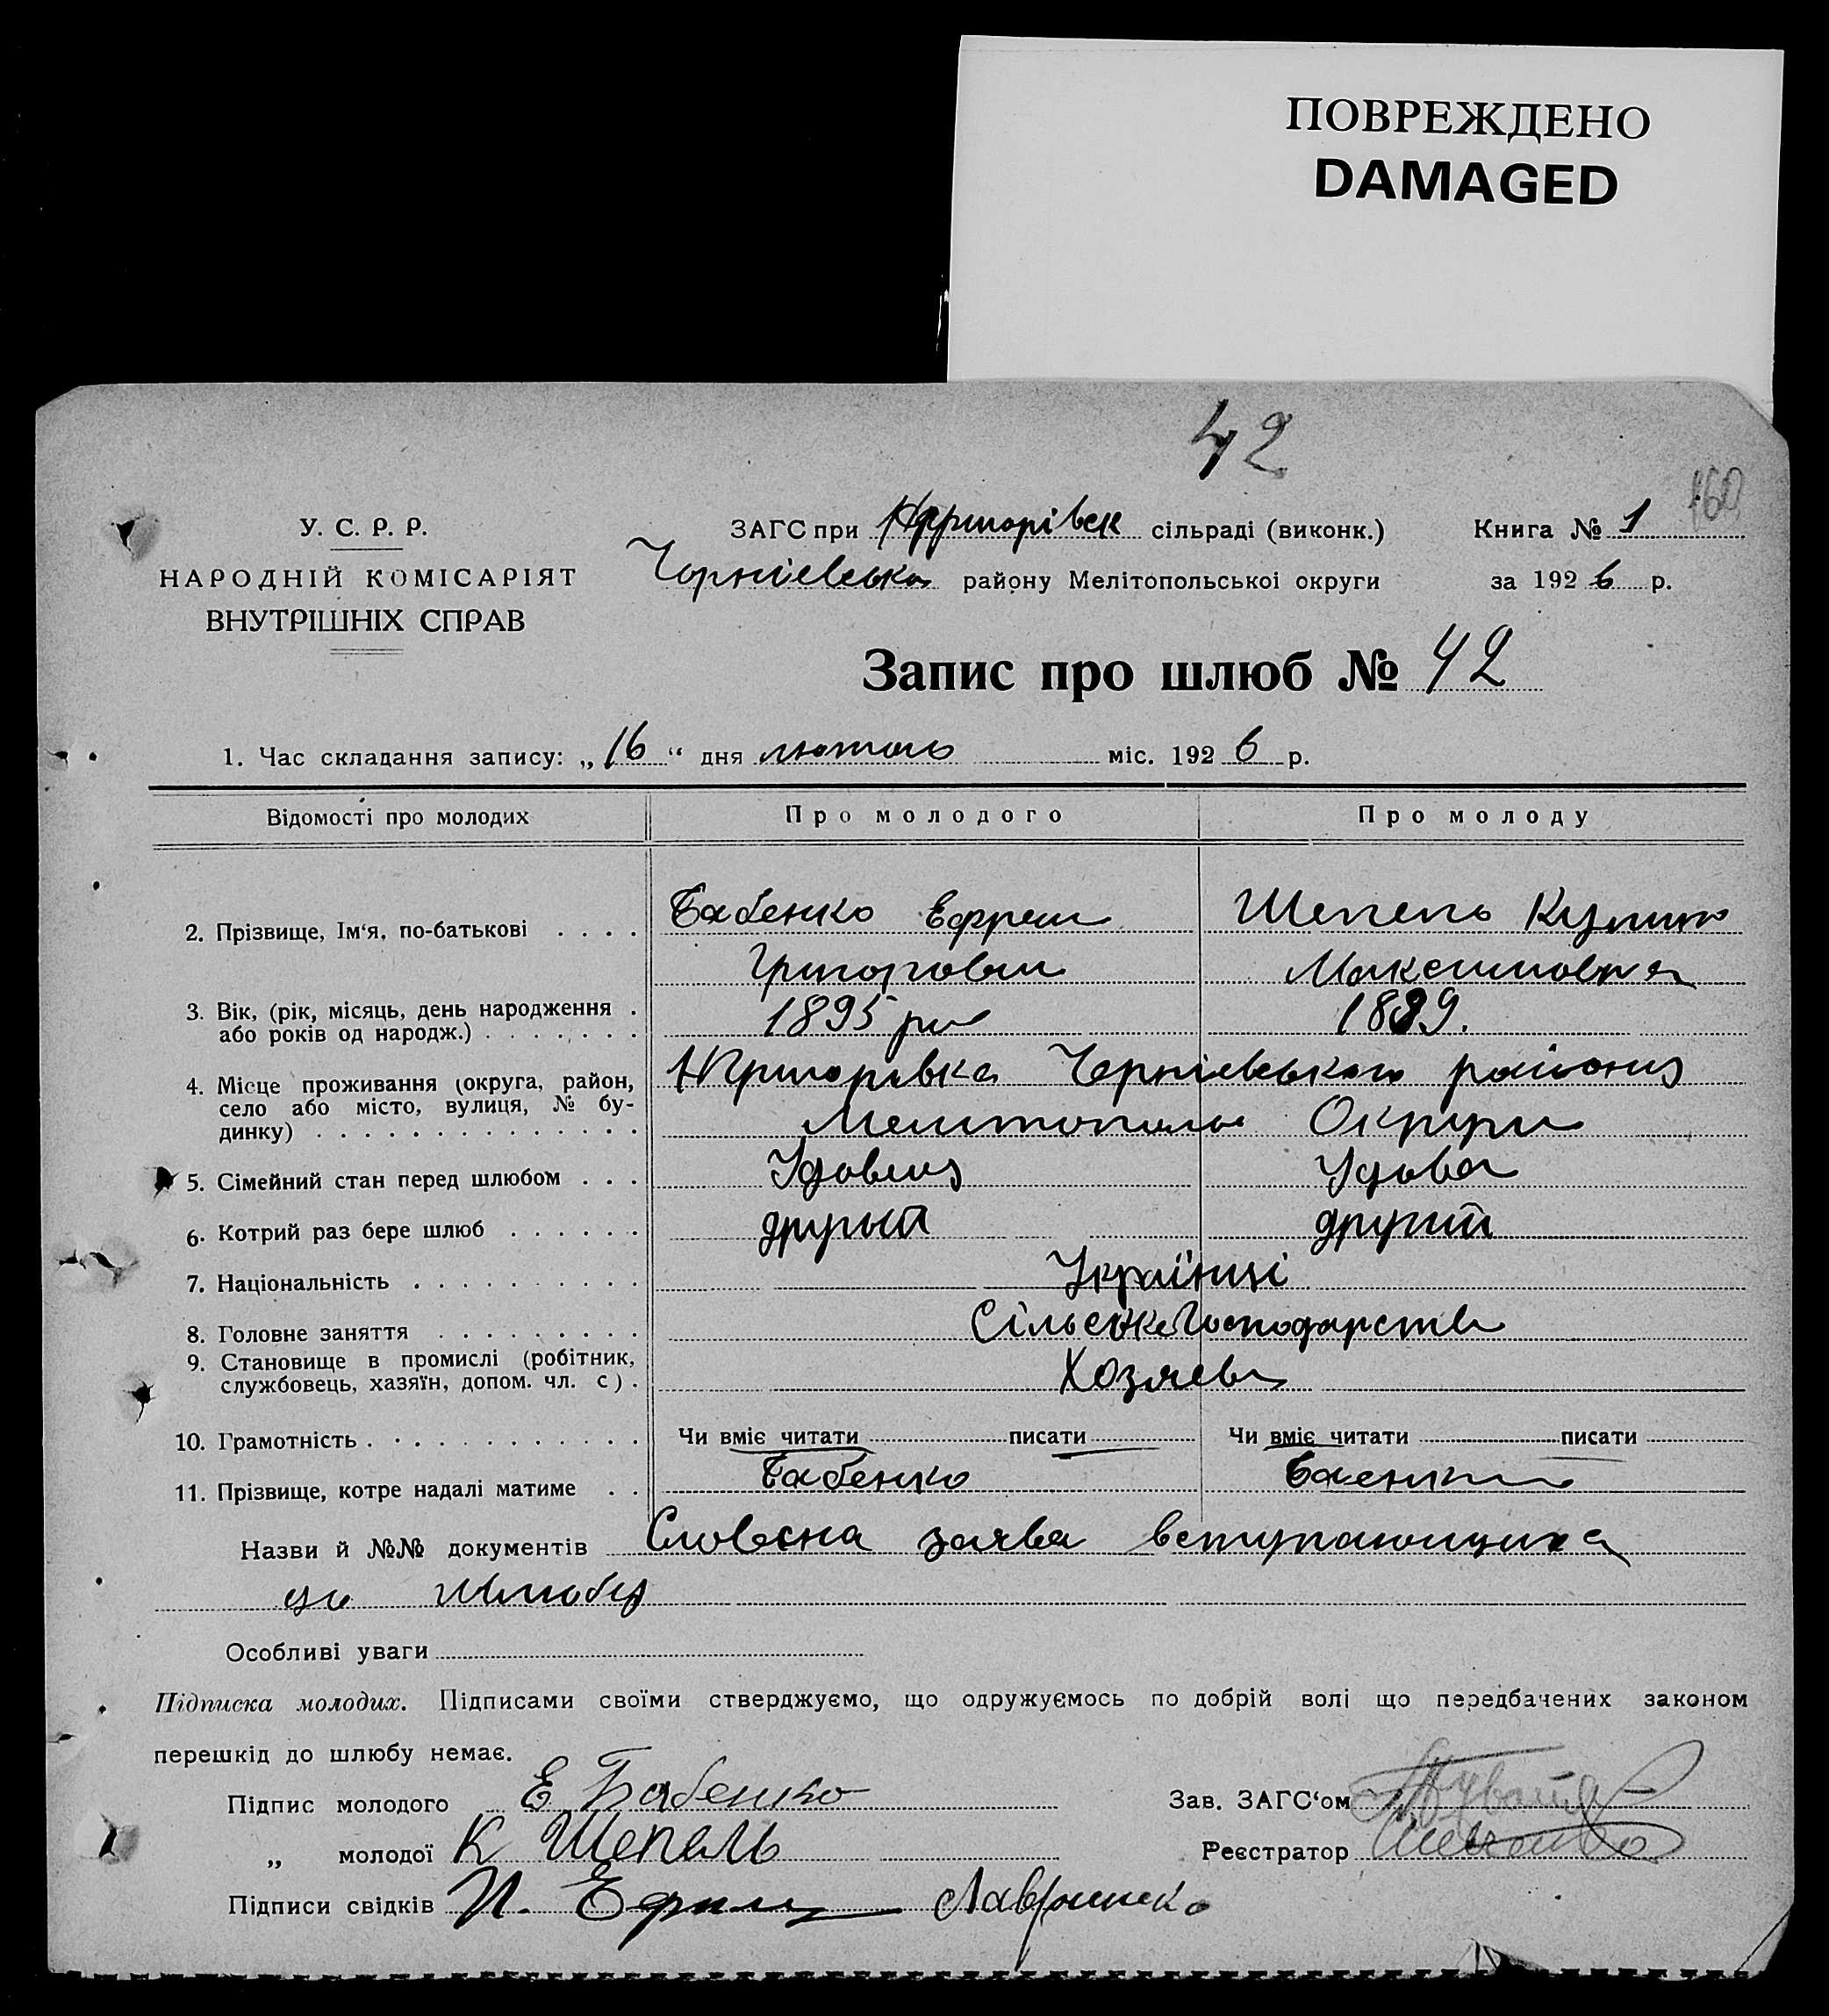 ПОВРЕЖДЕНО
DAMAGED
42
160
У. С. Р. Р.
НАРОДНІЙ КОМІСАРІЯТ
ВНУТРІШНІХ СПРАВ
ЗАГС при сільраді (виконк.) Книга № 1
району Мелітопольської округи за 1926 р.
Запис про шлюб № 42
1. Час складання запису: „16“ дня лютого міс. 1926 р.
Відомості про молодих Про молодого Про молоду
2. Прізвище, Ім‘я, по-батькові . . . . Бабенко Ефрем Шепель
Григорович Максимовна
3. Вік, (рік, місяць, день народження .
або років од народж.) . . . . . . . 1895 1889.
4. Місце проживання (округа, район, района
село або місто, вулиця, № бу- Округи
динку) . . . . . . . . . . . . . .
5. Сімейний стан перед шлюбом . . . Удовець Удова
6. Котрий раз бере шлюб . . . . . . другий другий
7. Національність . . . . . . . . . . Українці
8. Головне заняття . . . . . . . . . Сільське Господарство
9. Становище в промислі (робітник,
службовець, хазяїн, допом. чл. с) . Хозяева
10. Грамотність . . . . . . . . . . . . Чи вміє читати писати Чи вміє читати писати
11. Прізвище, котре надалі матиме . . Бабенко
Назви й №№ документів Словесна заява вступающих
до шлюбу
Особливі уваги
Підписка молодих. Підписами своїми стверджуємо, що одружуємось по добрій волі що передбачених законом
перешкід до шлюбу немає.
Підпис молодого Е Бабенко Зав. ЗАГС‘ом
„ молодої К Шепель Реєстратор
Підписи свідків